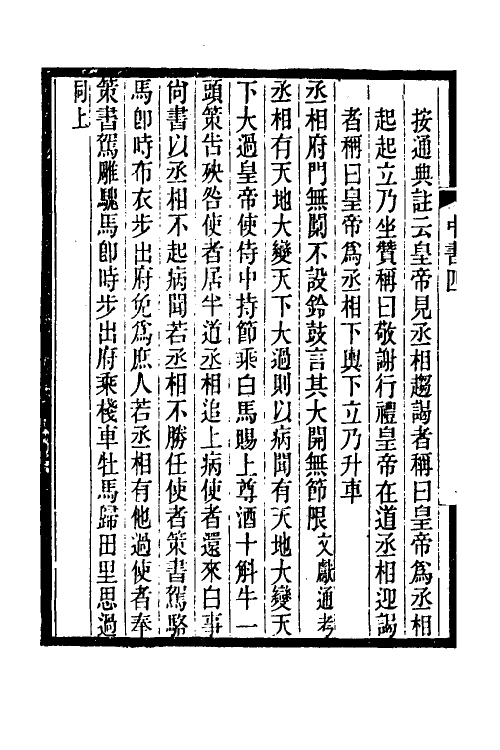 按通典註云皇帝見丞相趨謁者稱曰皇帝爲丞相
起起立乃坐贊稱曰敬謝行禮皇帝在道丞相迎謁
者稱曰皇帝爲丞相下輿下立乃升車
丞相府門無闌不設鈴鼓言其大開無節限文獻通考
丞相有天地大變天下大過則以病聞有天地大變天
下大過皇帝使侍中持節乘白馬賜上尊酒十斛牛一
頭策告殃咎使者居半道丞相追上病使者還來白事
尙書以丞相不起病聞若丞相不勝任使者策書駕駱
馬卽時布衣步出府免爲庶人若丞相有他過使者奉
策書駕雕騩馬卽時步出府乘棧車牡馬歸田里思過
同上
中書四